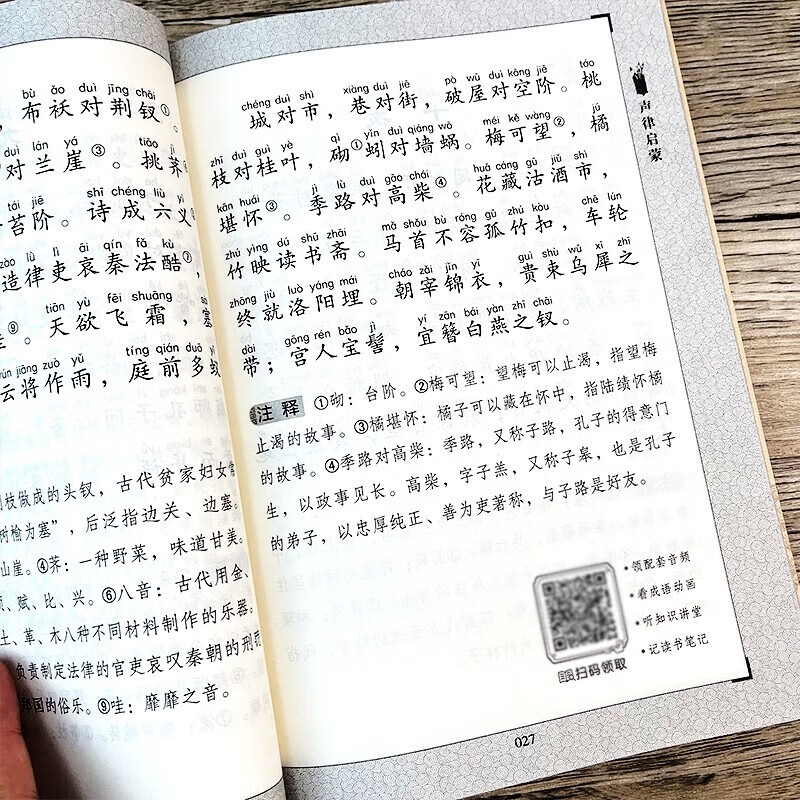 bù ǎo duì jīng chāi
，布袄对荆钗①。
duì lán yá tiāo jì
对兰崖③。挑荠
tái jiē shī chéng liù yì
苔阶。诗成六义
zào lǜ lì āi qín fǎ kù
造律吏哀秦法酷⑦，
tiān yù fēi shuāng
⑨。天欲飞霜，塞
yún jiāng zuò yǔ tíng qián duō yǐ
云将作雨，庭前多蚁
枝做成的头钗，古代贫家妇女常
树榆为塞”，后泛指边关、边塞。
山崖。④荠：一种野菜，味道甘美。
颂、赋、比、兴。⑥八音：古代用金、
土、革、木八种不同材料制作的乐器。
负责制定法律的官吏哀叹秦朝的刑罚
郑国的俗乐。⑨哇：靡靡之音。
chéng duì shì xiàng duì jiē pò wū duì kōng jiē táo
城对市，巷对街，破屋对空阶。桃
zhī duì guì yè qì yǐn duì qiáng wō méi kě wàng jú
枝对桂叶，砌①蚓对墙蜗。梅可望②，橘
kān huái jì lù duì gāo chái huā cáng gū jiǔ shì
堪怀③。季路对高柴④。花藏沽酒市，
zhú yìng dú shū zhāi mǎ shǒu bù róng gū zhú kòu chē lún
竹映读书斋。马首不容孤竹扣，车轮
zhōng jiù luò yáng mái cháo zǎi jǐn yī guì shù wū xī zhī
终就洛阳埋。朝宰锦衣，贵束乌犀之
dài gōng rén bǎo jì yí zān bái yàn zhī chāi
带；宫人宝髻，宜簪白燕之钗。
注释 ①砌：台阶。②梅可望：望梅可以止渴，指望梅
止渴的故事。③橘堪怀：橘子可以藏在怀中，指陆绩怀橘
的故事。④季路对高柴：季路，又称子路，孔子的得意门
生，以政事见长。高柴，字子羔，又称子皋，也是孔子
的弟子，以忠厚纯正、善为吏著称，与子路是好友。
•领配套音频
•看成语动画
•听知识讲堂
•记读书笔记
扫码领取
027
声律启蒙